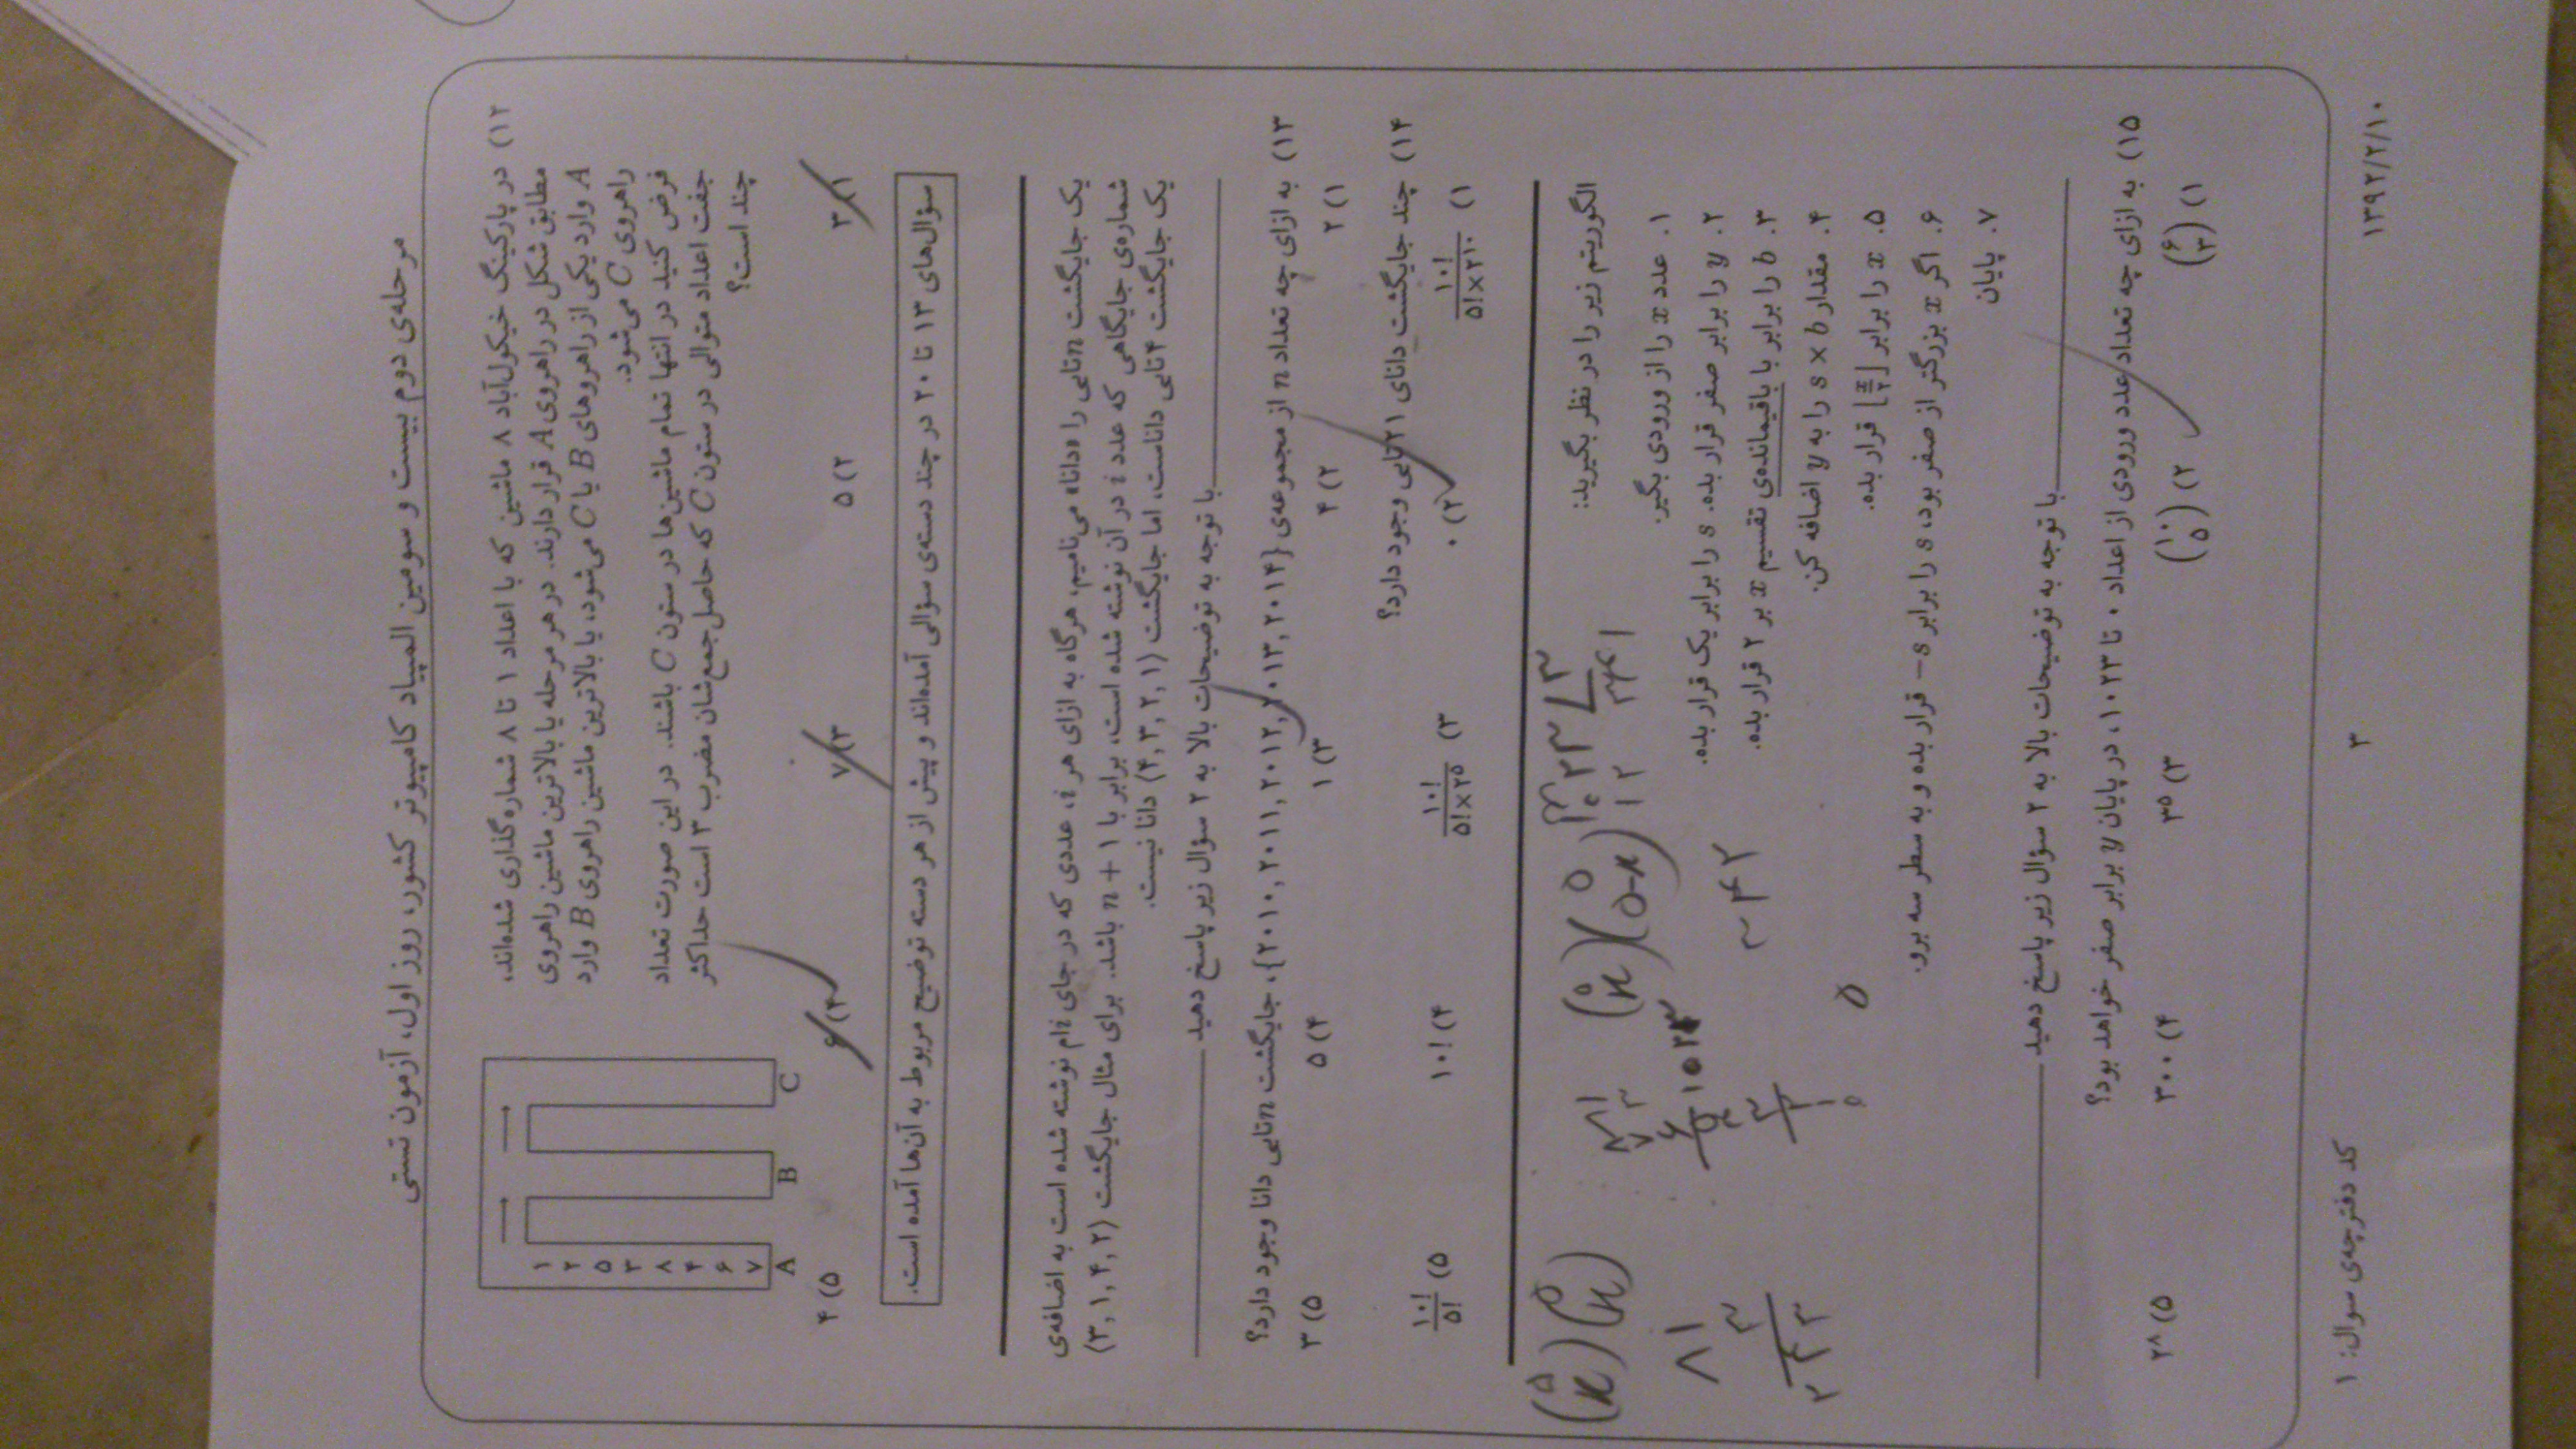 مرحله‌ی دوم بیست و سومین المپیاد کامپیوتر کشور، روز اول، آزمون تستی
۱۲) در پارکینگ خیکول‌آباد ۸ ماشین که با اعداد ۱ تا ۸ شماره‌گذاری شده‌اند،
مطابق شکل در راهروی A قرار دارند. در هر مرحله یا بالاترین ماشین راهروی
A وارد یکی از راهروهای B یا C می‌شود، یا بالاترین ماشین راهروی B وارد
راهروی C می‌شود.
فرض کنید در انتها تمام ماشین‌ها در ستون C باشند. در این صورت تعداد
جفت اعداد متوالی در ستون C که حاصل جمع‌شان مضرب ۳ است حداکثر
چند است؟
۱
۲
۵
۳
۸
۴
۶
۷
A B C
۱) ۳ ۲) ۵ ۳) ۷ ۴) ۶ ۵) ۴
سؤال‌های ۱۳ تا ۲۰ در چند دسته‌ی سؤالی آمده‌اند و پیش از هر دسته توضیح مربوط به آن‌ها آمده است.
یک جایگشت nتایی را «دانا» می‌نامیم، هرگاه به ازای هر i، عددی که در جای iام نوشته شده است به اضافه‌ی
شماره‌ی جایگاهی که عدد i در آن نوشته شده است، برابر با n + ۱ باشد. برای مثال جایگشت (۳, ۱, ۴, ۲)
یک جایگشت ۴تایی داناست، اما جایگشت (۴, ۳, ۲, ۱) دانا نیست.
با توجه به توضیحات بالا به ۲ سؤال زیر پاسخ دهید
۱۳) به ازای چه تعداد n از مجموعه‌ی {۲۰۱۰, ۲۰۱۱, ۲۰۱۲, ۲۰۱۳, ۲۰۱۴}، جایگشت nتایی دانا وجود دارد؟
۱) ۲ ۲) ۴ ۳) ۱ ۴) ۵ ۵) ۳
۱۴) چند جایگشت دانای ۲۱تایی وجود دارد؟
۱) ۱۰!/۵!×۲^۱۰ ۲) ۰ ۳) ۱۰!/۵!×۲^۵ ۴) ۱۰! ۵) ۱۰!/۵!
الگوریتم زیر را در نظر بگیرید:
۱. عدد x را از ورودی بگیر.
۲. y را برابر صفر قرار بده. s را برابر یک قرار بده.
۳. b را برابر با باقیمانده‌ی تقسیم x بر ۲ قرار بده.
۴. مقدار s × b را به y اضافه کن.
۵. x را برابر ⌊x/۲⌋ قرار بده.
۶. اگر x بزرگتر از صفر بود، s را برابر −s قرار بده و به سطر سه برو.
۷. پایان
با توجه به توضیحات بالا به ۲ سؤال زیر پاسخ دهید
۱۵) به ازای چه تعداد عدد ورودی از اعداد ۰ تا ۱۰۲۳، در پایان y برابر صفر خواهد بود؟
۱) (۶ ۳) ۲) (۱۰ ۵) ۳) ۳۵ ۴) ۳۰۰ ۵) ۲۸
کد دفترچه‌ی سوال: ۱ ۳ ۱۳۹۲/۲/۱۰